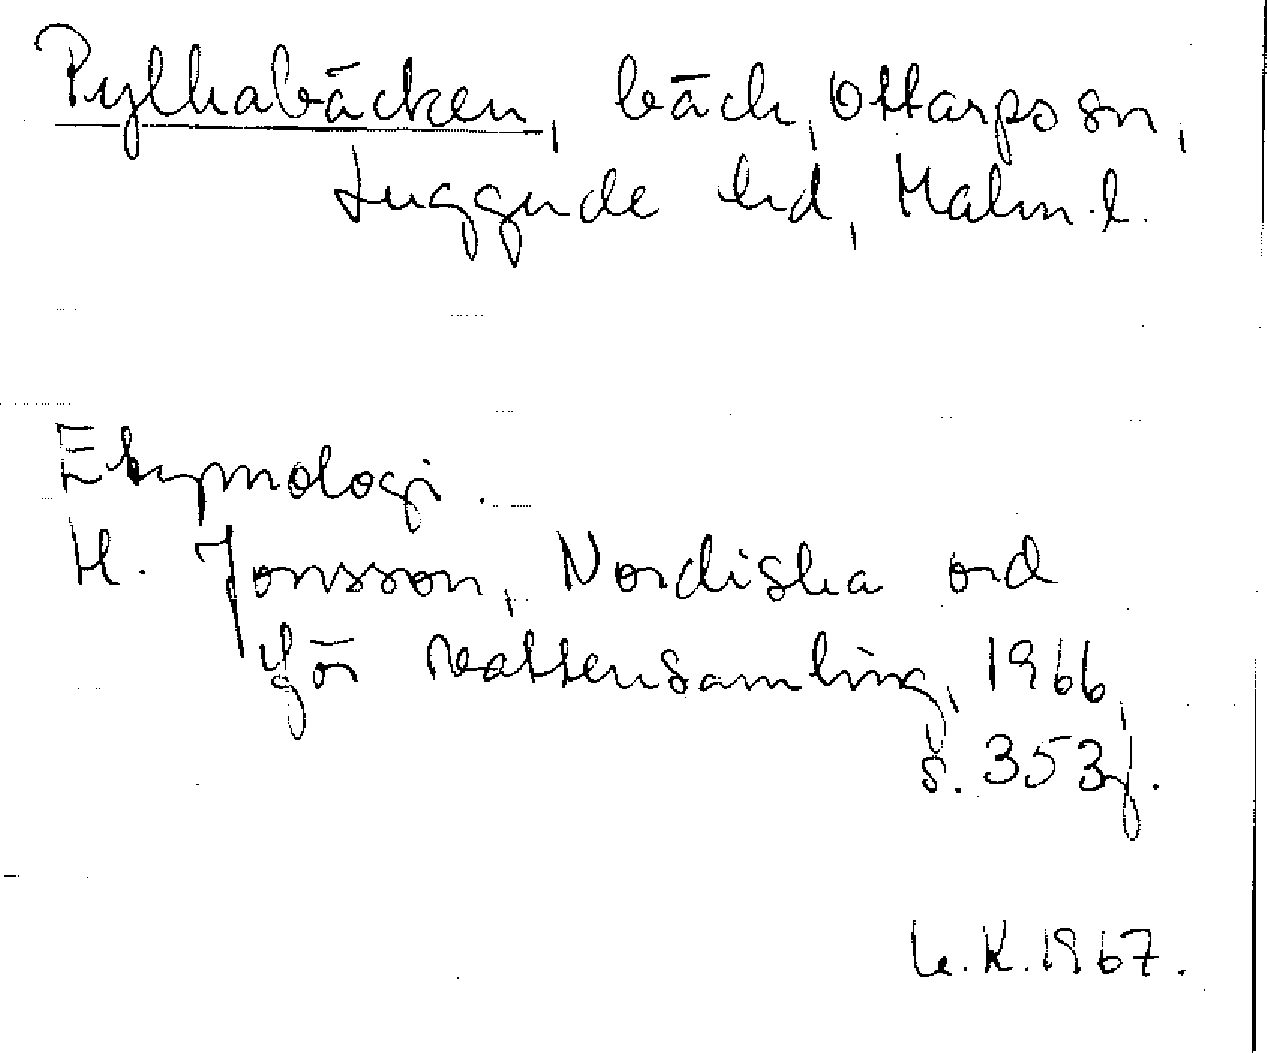 Pylkabäcken, bäck, Ottarps sn,
Luggude hd, Malm. l.
Etymologi.
H. Jonsson, Nordiska ord
för vattensamling, 1966,
s. 353f.
U.K. 1967.